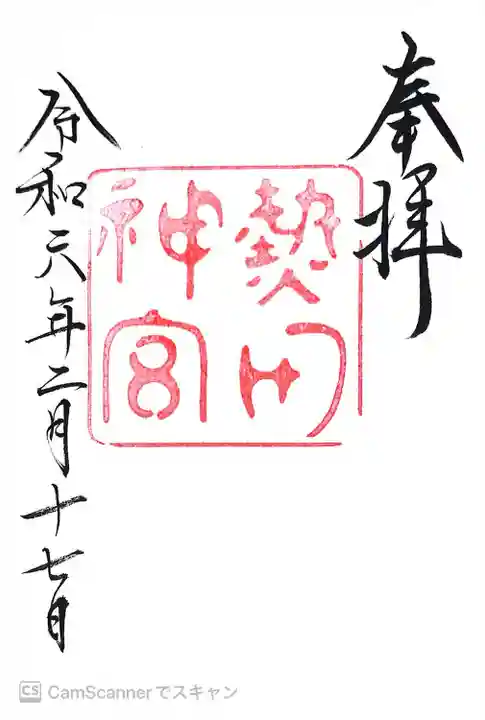 奉拝
熱田
神宮
令和六年二月十七日
CS CamScannerでスキャン